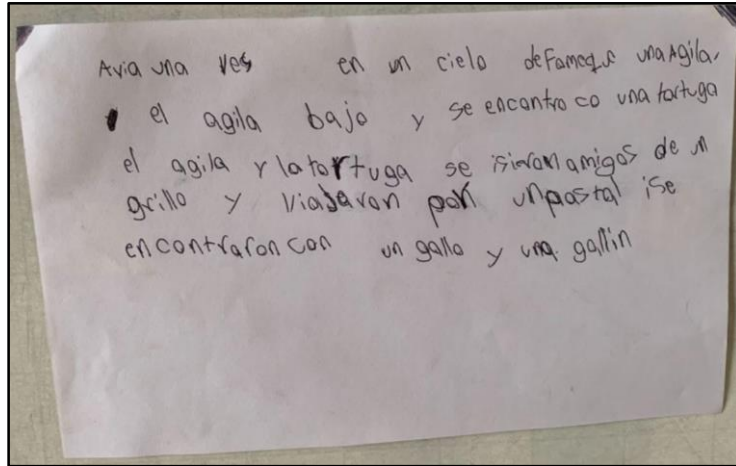 Avia una ves en un cielo defameque una Agila,
el agila bajo y se encontro co una tortuga
el agila y la tortuga se isieron amigos de un
grillo y viajaron por un pastal ise
encontraron con un gallo y una gallin